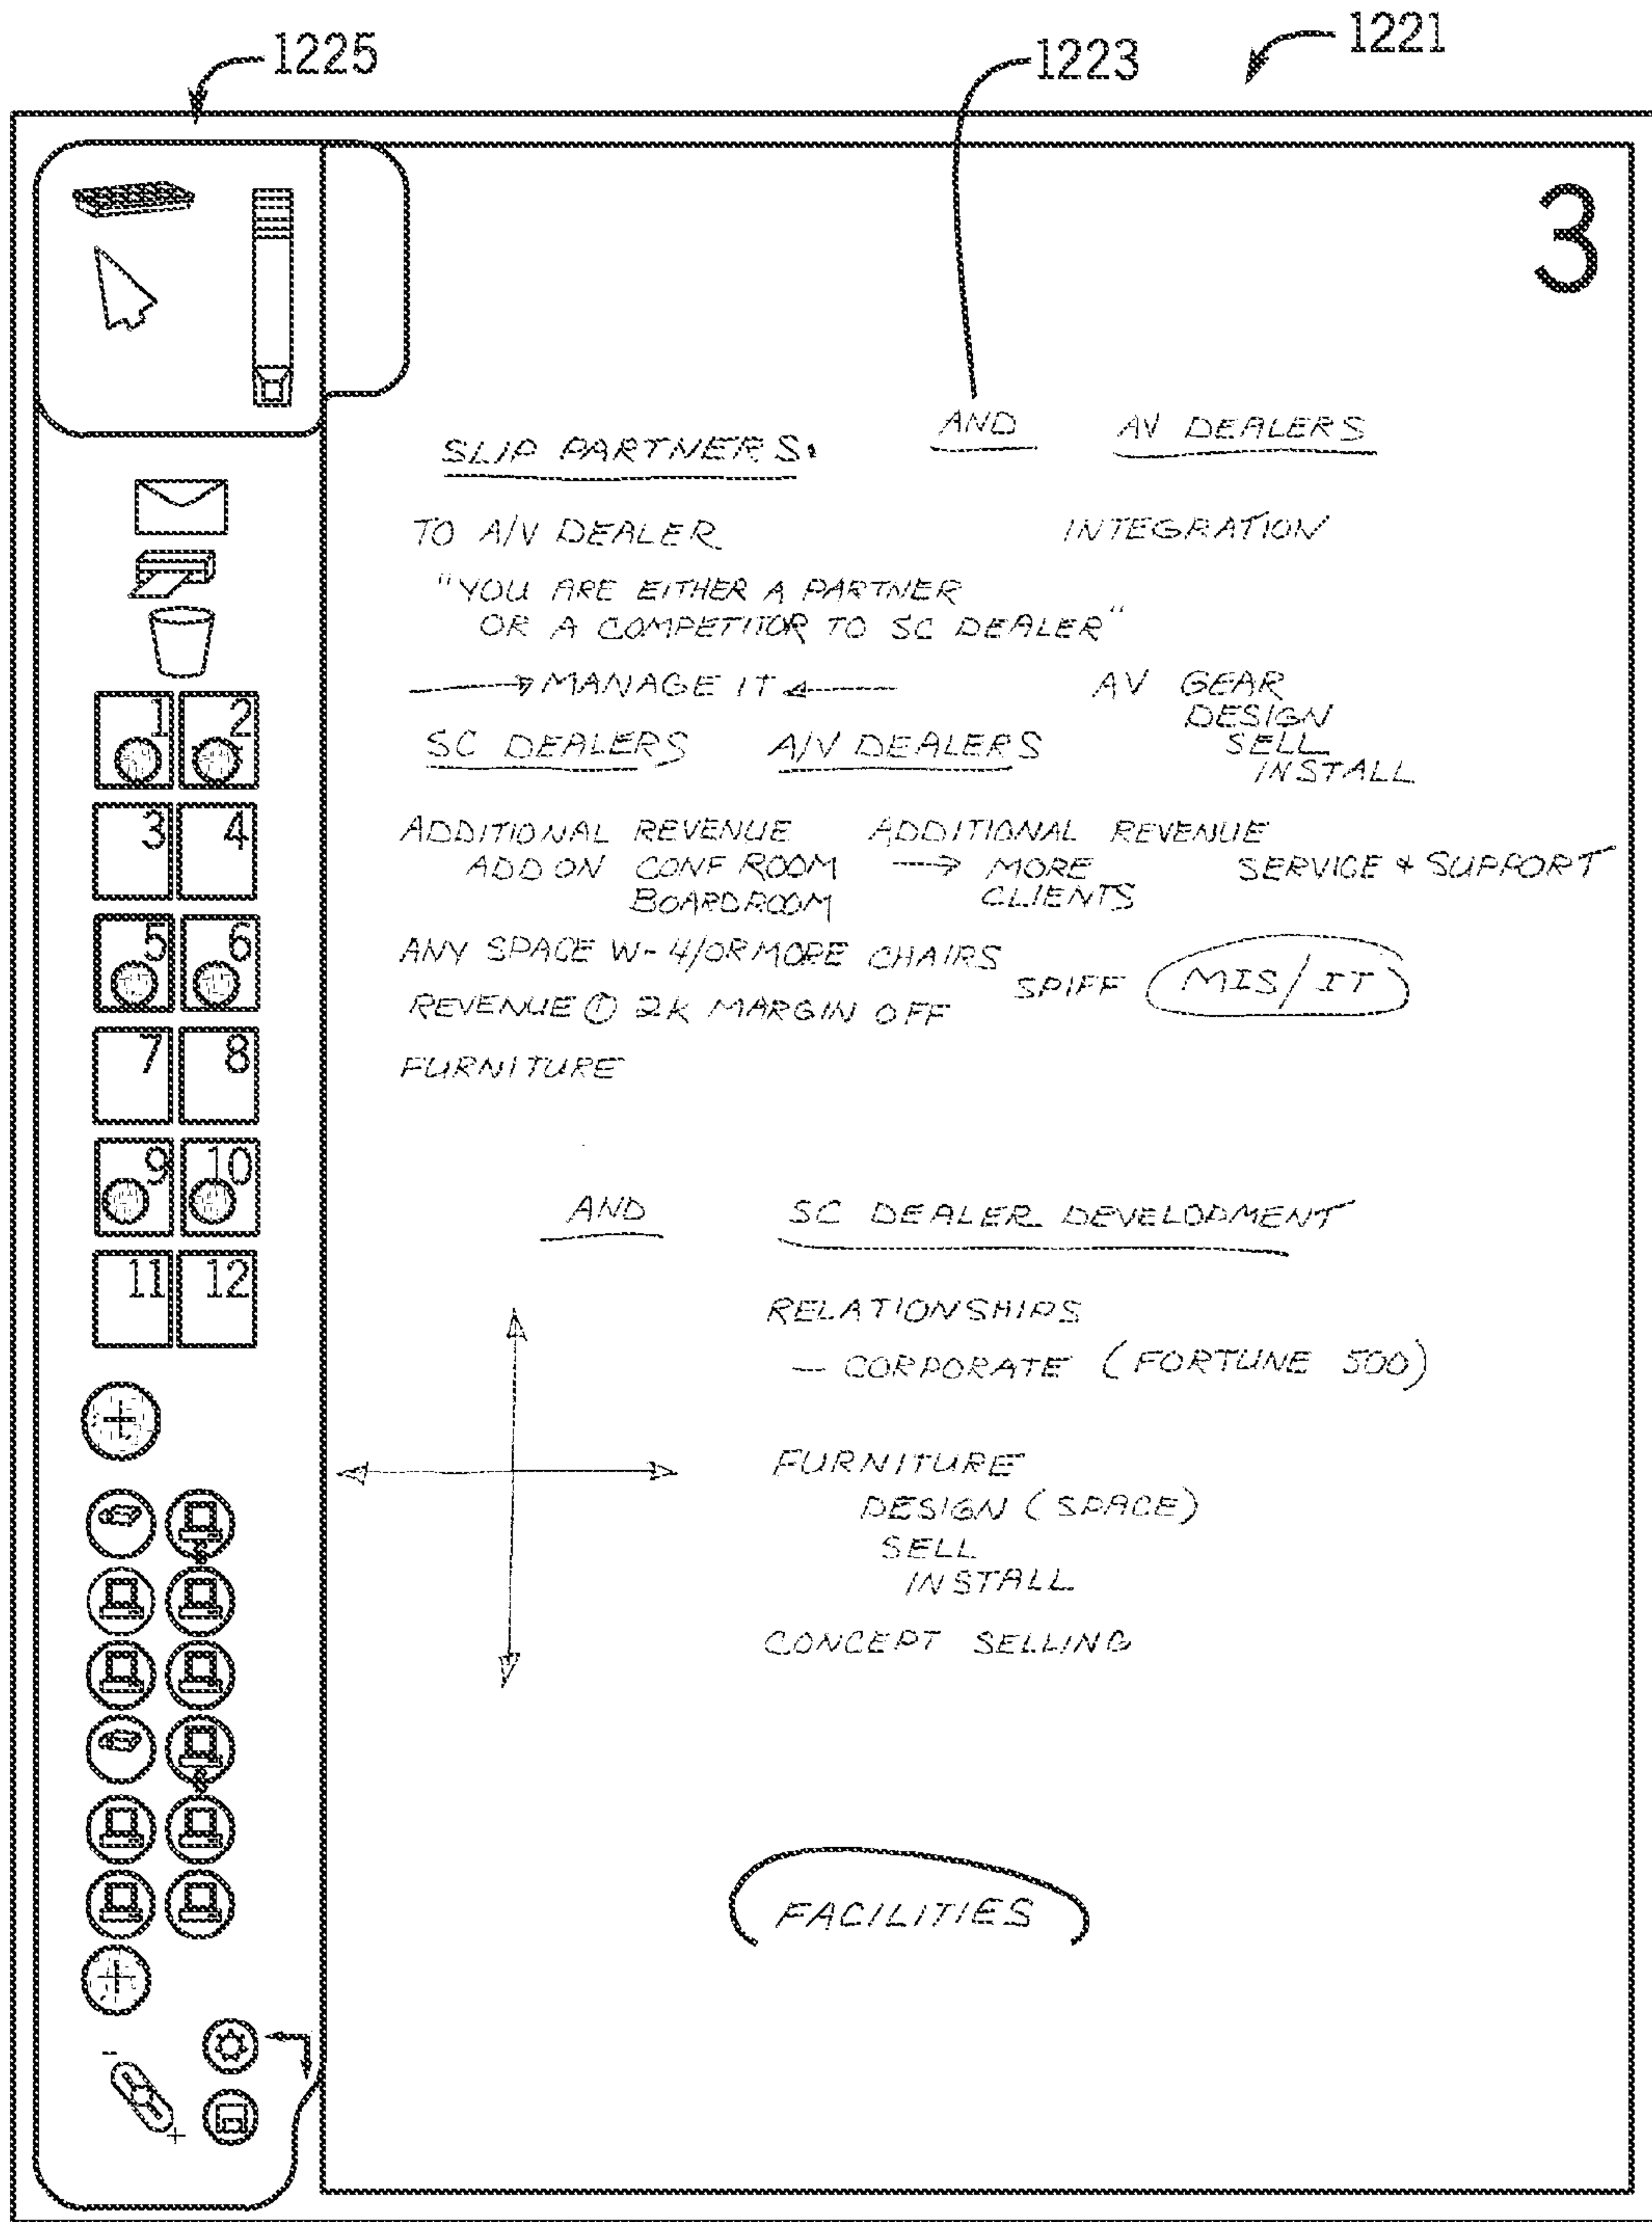 1225
1223
1221
3
SLIP PARTNERS:
AND
AV DEALERS
TO A/V DEALER
INTEGRATION
"YOU ARE EITHER A PARTNER
OR A COMPETITOR TO SC DEALER"
MANAGE IT
AV GEAR
DESIGN
SELL
INSTALL
SC DEALERS
A/V DEALERS
ADDITIONAL REVENUE
ADD ON CONF ROOM
BOARDROOM
ADDITIONAL REVENUE
MORE
CLIENTS
SERVICE + SUPPORT
ANY SPACE W- 4/OR MORE CHAIRS
SPIFF
MIS/IT
REVENUE ① 2K MARGIN OFF
FURNITURE
AND
SC DEALER DEVELOPMENT
RELATIONSHIPS
- CORPORATE (FORTUNE 500)
FURNITURE
DESIGN (SPACE)
SELL
INSTALL
CONCEPT SELLING
FACILITIES
1 2
3 4
5 6
7 8
9 10
11 12
+
+
-
+